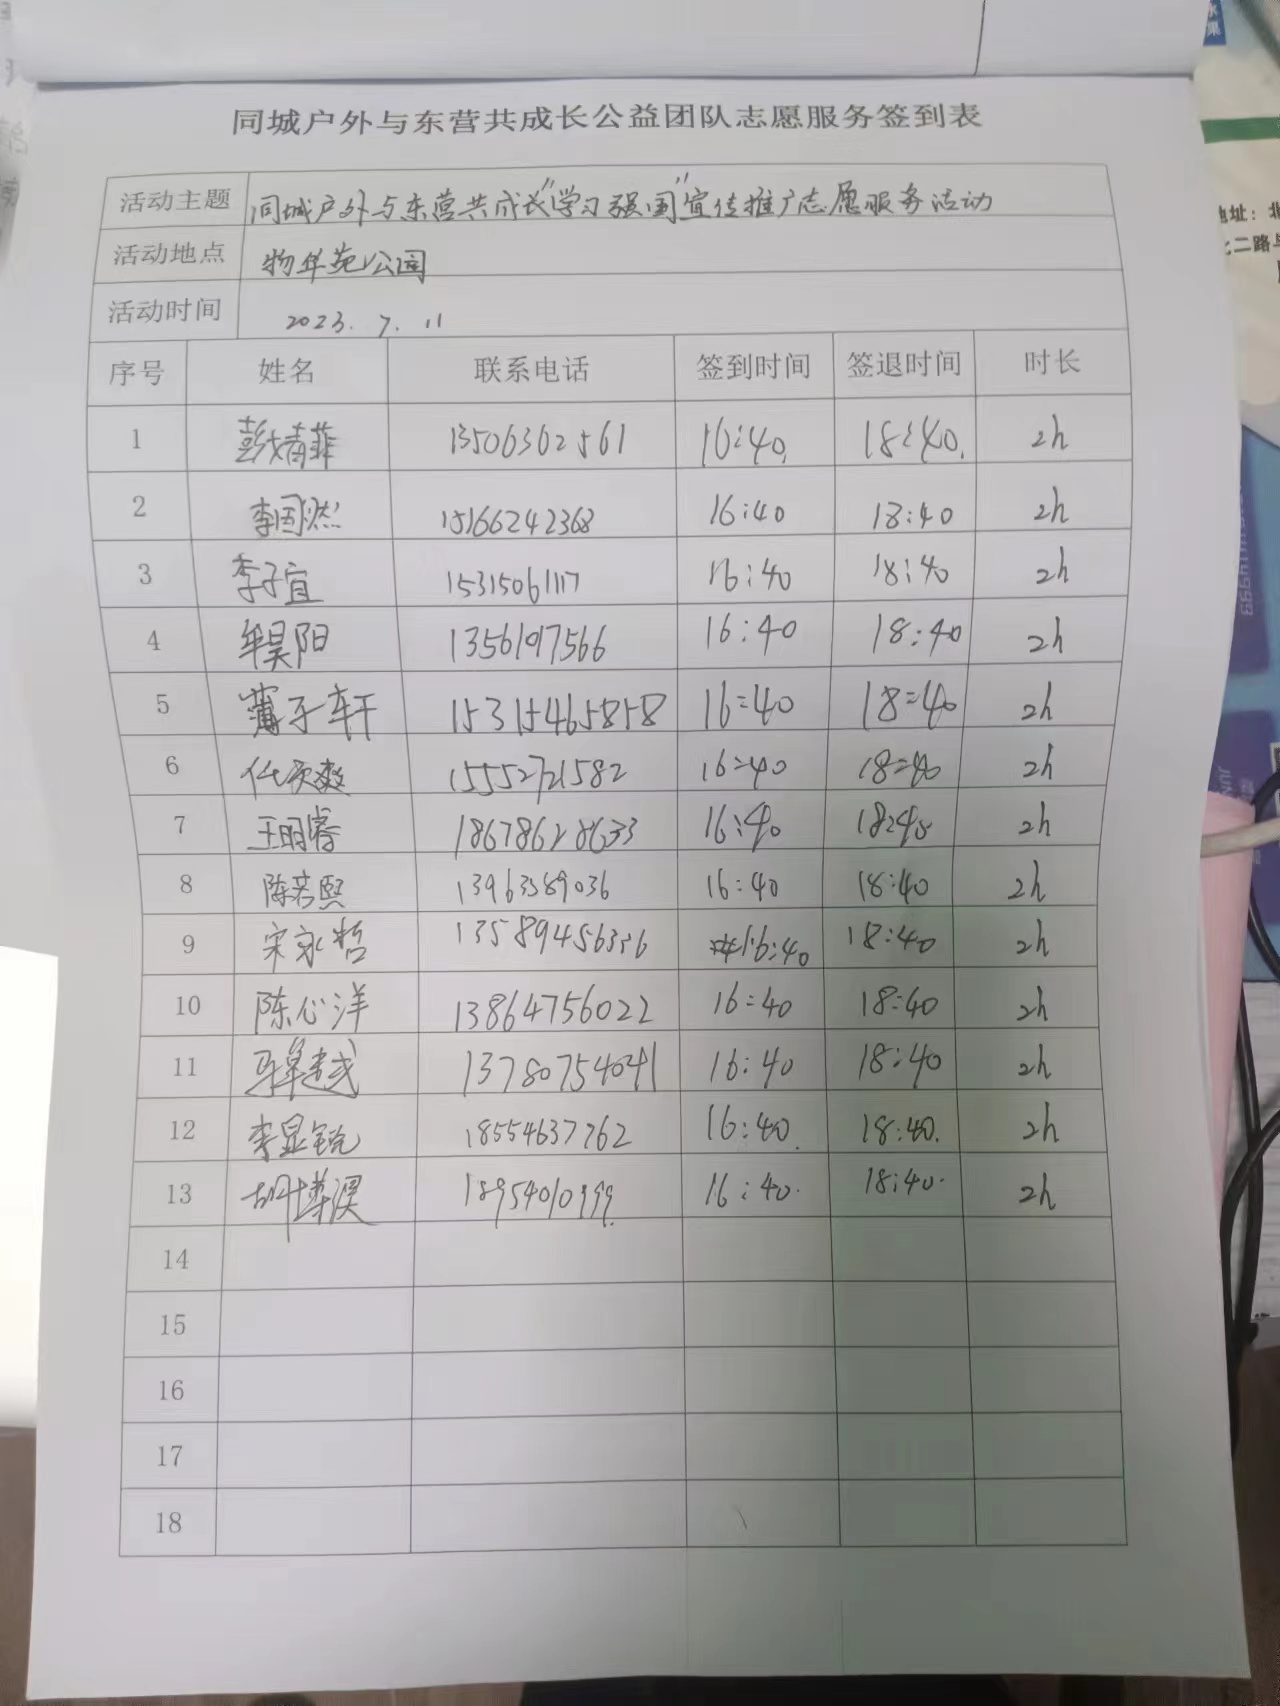 同城户外与东营共成长公益团队志愿服务签到表
活动主题 同城户外与东营共成长"学习强国"宣传推广志愿服务活动
活动地点 物华苑公园
活动时间 2023.7.11
序号 姓名 联系电话 签到时间 签退时间 时长
1 彭婧菲 13506362561 16:40. 18:40. 2h
2 李国燃 15166242368 16:40 18:40 2h
3 李子宜 15315061117 16:40 18:40 2h
4 牟昊阳 1356197566 16:40 18:40 2h
5 薄子轩 15315465858 16:40 18:40 2h
6 15552721582 16:40 18:40 2h
7 王明睿 18678628633 16:40 18:40 2h
8 陈若熙 13963389036 16:40 18:40 2h
9 宋永哲 16:40 18:40 2h
10 陈心洋 13864756022 16:40 18:40 2h
11 13780754041 16:40 18:40 2h
12 李显锐 18554637762 16:40. 18:40. 2h
13 胡博淏 18954010999. 16:40. 18:40. 2h
14
15
16
17
18
水果
地址：北
二路与